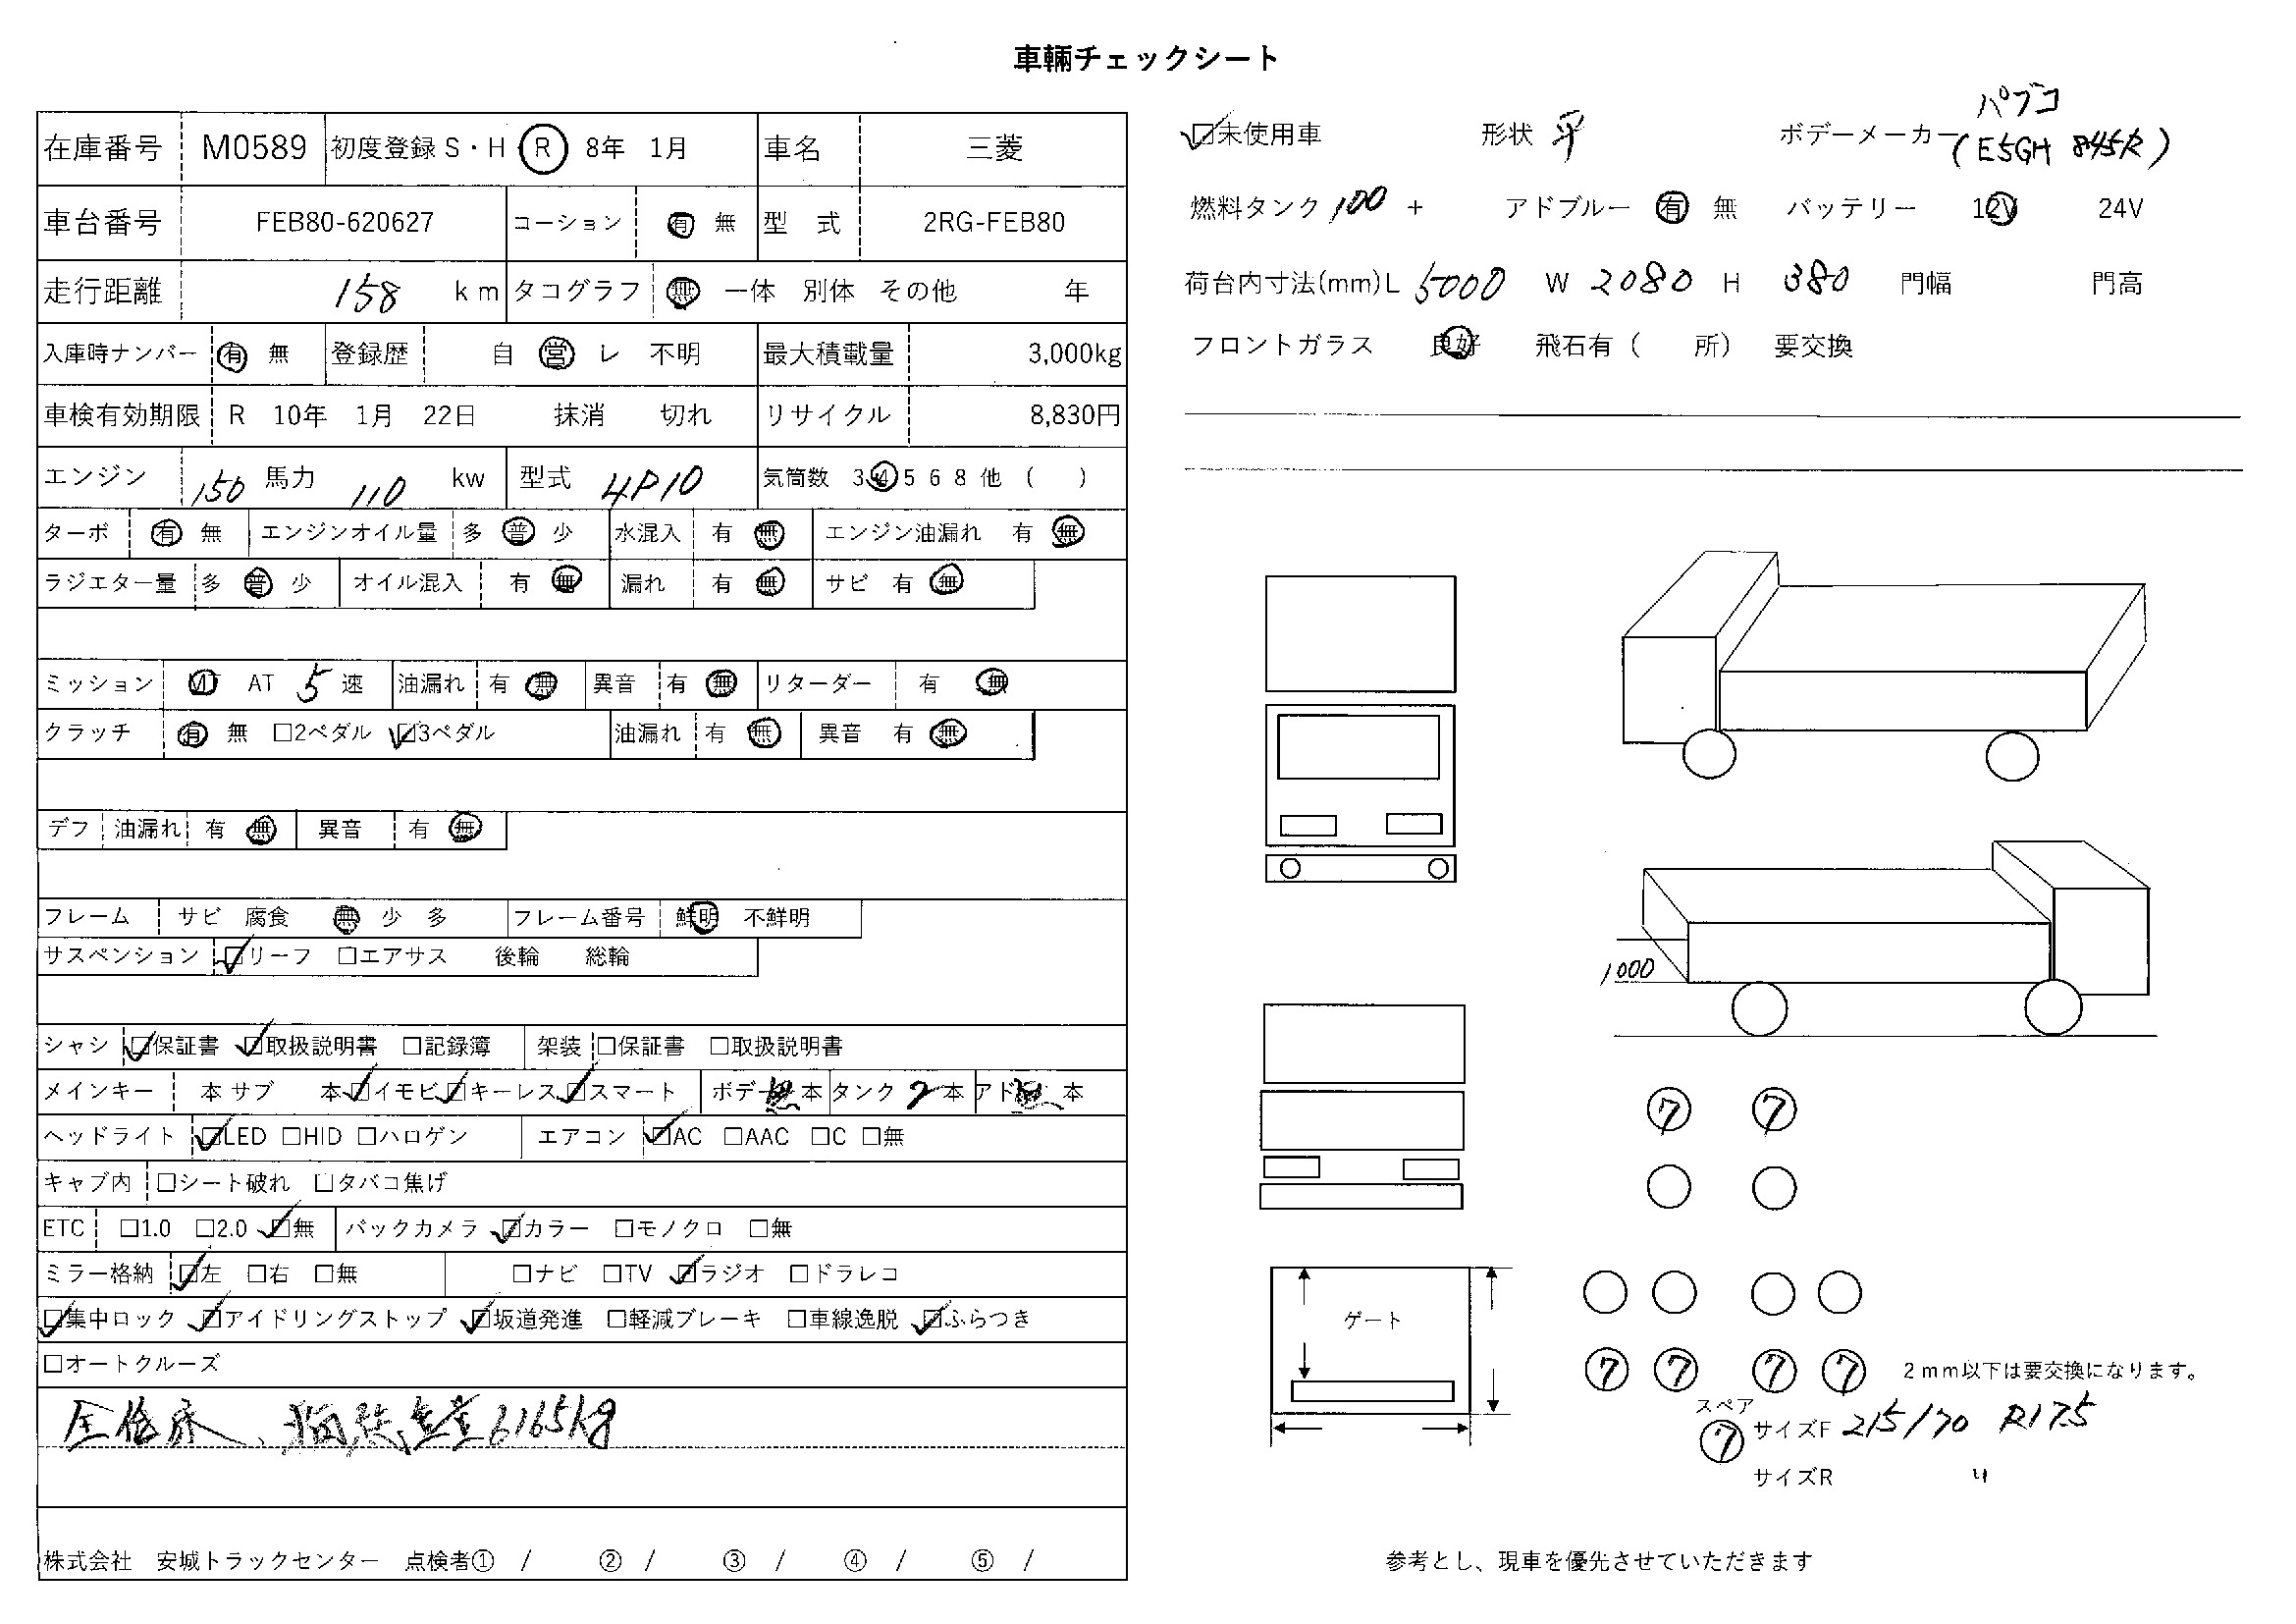 車輛チェックシート
在庫番号 M0589 初度登録 S・H R 8年 1月 車名 三菱
車台番号 FEB80-620627 コーション 有 無 型 式 2RG-FEB80
走行距離 158 km タコグラフ 無 一体 別体 その他 年
入庫時ナンバー 有 無 登録歴 自 営 レ 不明 最大積載量 3,000kg
車検有効期限 R 10年 1月 22日 抹消 切れ リサイクル 8,830円
エンジン 150 馬力 110 kw 型式 4P10 気筒数 3 4 5 6 8 他 ( )
ターボ 有 無 エンジンオイル量 多 普 少 水混入 有 無 エンジン油漏れ 有 無
ラジエター量 多 普 少 オイル混入 有 無 漏れ 有 無 サビ 有 無
ミッション MT AT 5 速 油漏れ 有 無 異音 有 無 リターダー 有 無
クラッチ 有 無 □2ペダル ☑3ペダル 油漏れ 有 無 異音 有 無
デフ 油漏れ 有 無 異音 有 無
フレーム サビ 腐食 無 少 多 フレーム番号 鮮明 不鮮明
サスペンション ☑リーフ □エアサス 後輪 総輪
シャシ ☑保証書 ☑取扱説明書 □記録簿 架装 □保証書 □取扱説明書
メインキー 本 サブ 本 ☑イモビ ☑キーレス ☑スマート ボデー 本 タンク 2 本 アド 本
ヘッドライト ☑LED □HID □ハロゲン エアコン ☑AC □AAC □C □無
キャブ内 □シート破れ □タバコ焦げ
ETC □1.0 □2.0 ☑無 バックカメラ ☑カラー □モノクロ □無
ミラー格納 ☑左 □右 □無 □ナビ □TV ☑ラジオ □ドラレコ
☑集中ロック ☑アイドリングストップ ☑坂道発進 □軽減ブレーキ □車線逸脱 ☑ふらつき
□オートクルーズ
重量6165kg
株式会社 安城トラックセンター 点検者① / ② / ③ / ④ / ⑤ /
パブコ
☑未使用車 形状 平 ボデーメーカー (E5GH 845R)
燃料タンク 100 + アドブルー 有 無 バッテリー 12V 24V
荷台内寸法(mm) L 5000 W 2080 H 380 門幅 門高
フロントガラス 良好 飛石有 ( 所) 要交換
1000
7 7
ゲート
7 7 7 7 2mm以下は要交換になります。
スペア
7 サイズF 215/70 R17.5
サイズR 〃
参考とし、現車を優先させていただきます